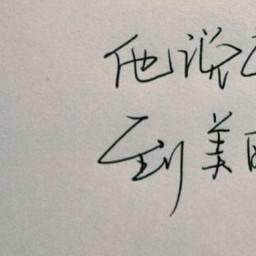 他说
到美